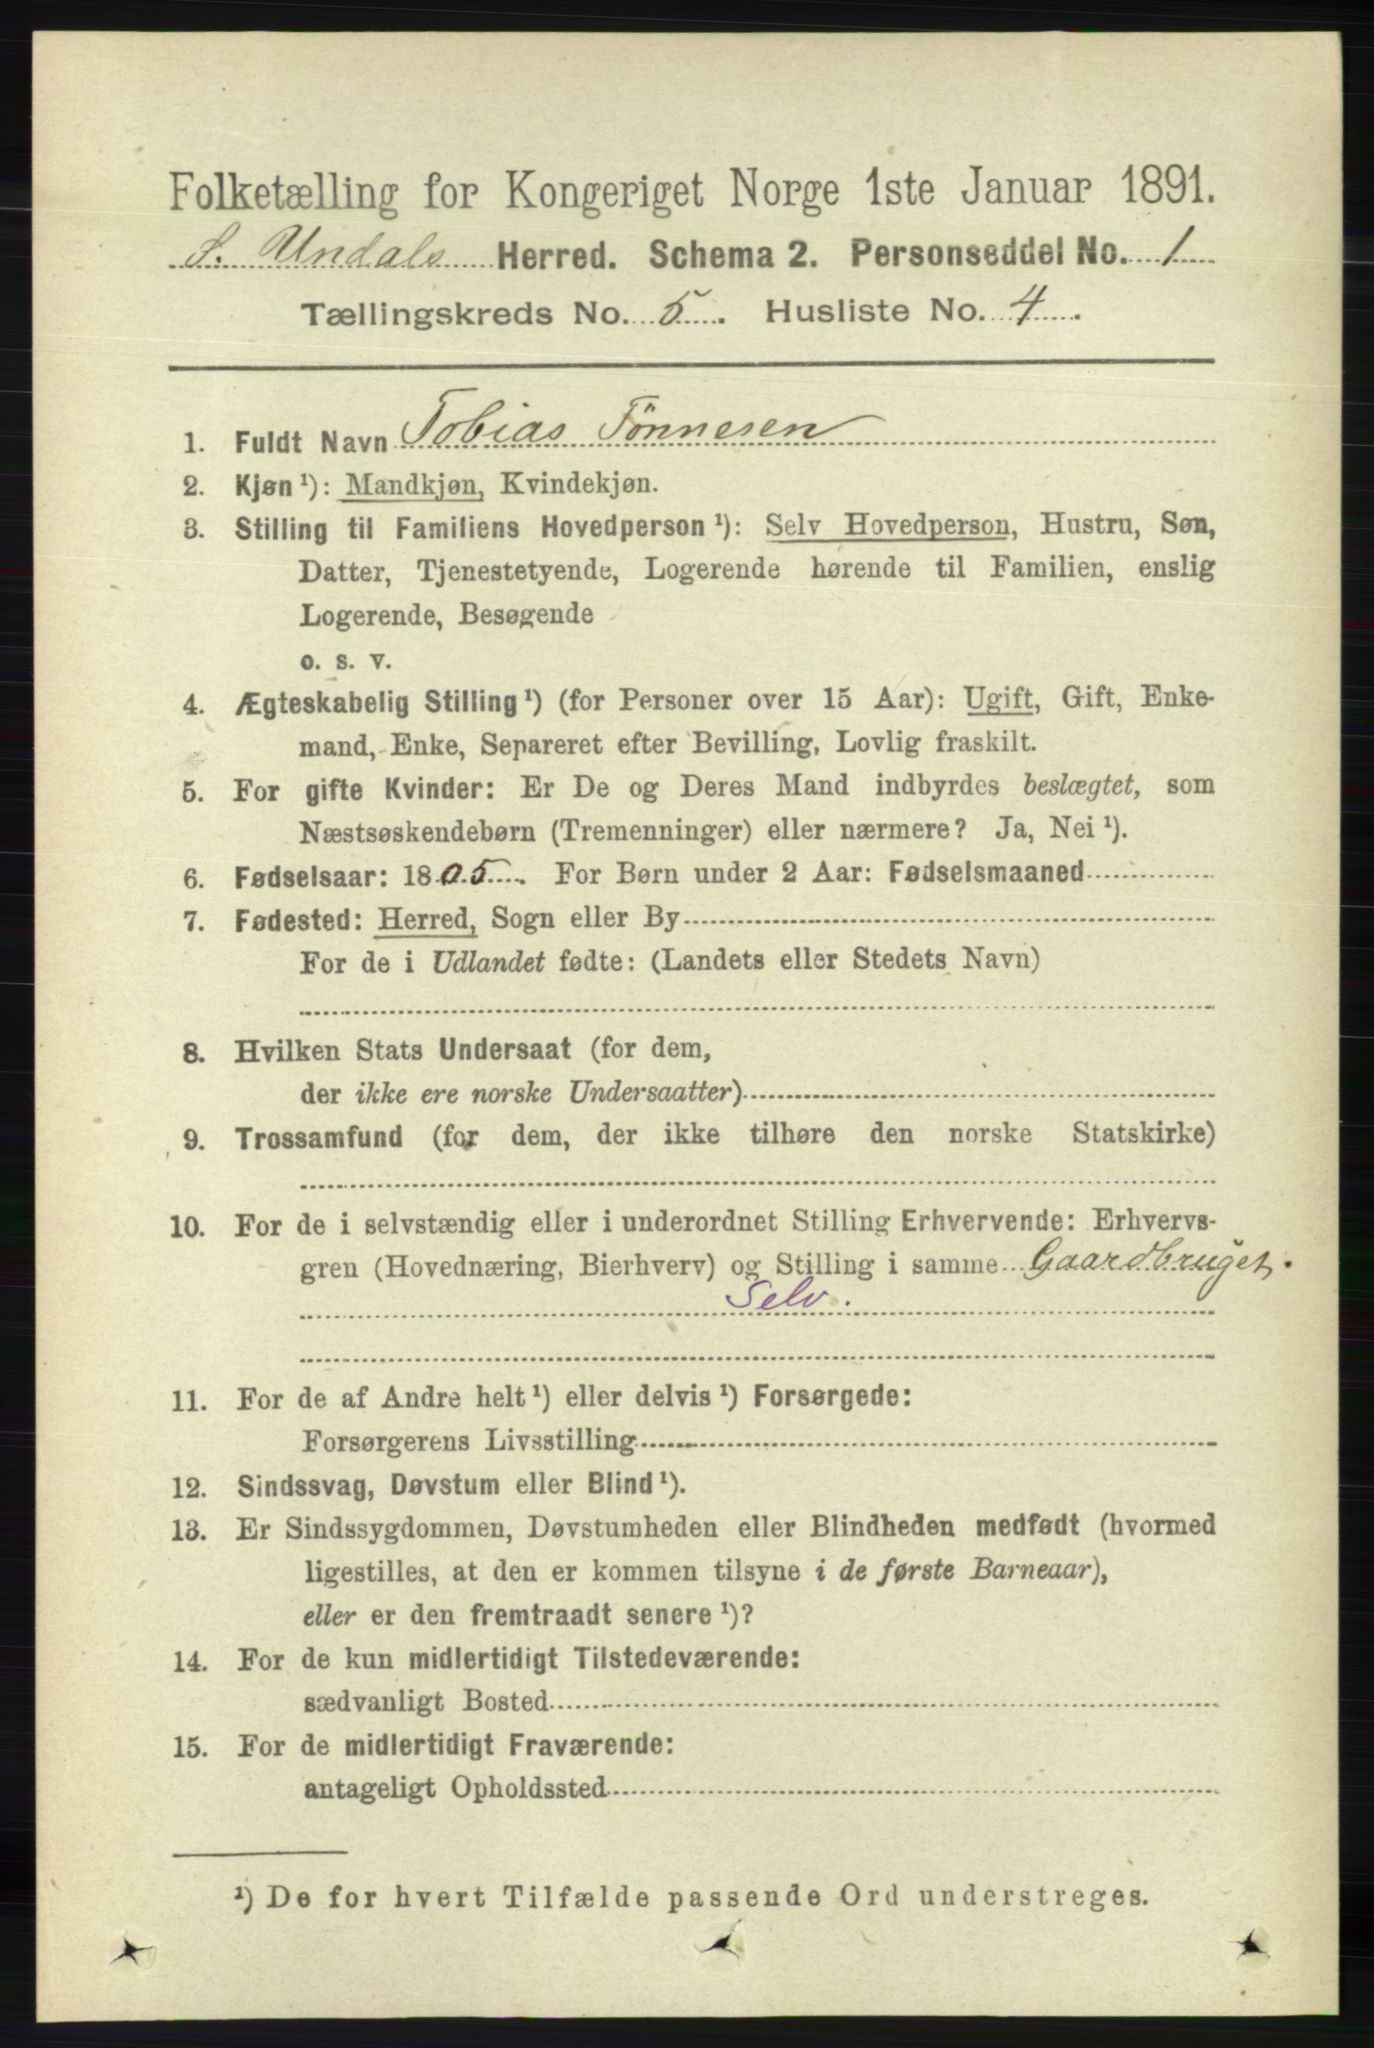 Folketælling for Kongeriget Norge 1ste Januar 1891.
S. Undals Herred. Schema 2. Personseddel No. 1
Tællingskreds No. 5. Husliste No. 4.
1. Fuldt Navn Tobias Tönnesen
2. Kjøn ¹): Mandkjøn, Kvindekjøn.
3. Stilling til Familiens Hovedperson ¹): Selv Hovedperson, Hustru, Søn,
Datter, Tjenestetyende, Logerende hørende til Familien, enslig
Logerende, Besøgende
o. s. v.
4. Ægteskabelig Stilling ¹) (for Personer over 15 Aar): Ugift, Gift, Enke-
mand, Enke, Separeret efter Bevilling, Lovlig fraskilt.
5. For gifte Kvinder: Er De og Deres Mand indbyrdes beslægtet, som
Næstsøskendebørn (Tremenninger) eller nærmere? Ja, Nei ¹).
6. Fødselsaar: 1805. For Børn under 2 Aar: Fødselsmaaned
7. Fødested: Herred, Sogn eller By
For de i Udlandet fødte: (Landets eller Stedets Navn)
8. Hvilken Stats Undersaat (for dem,
der ikke ere norske Undersaatter)
9. Trossamfund (for dem, der ikke tilhøre den norske Statskirke)
10. For de i selvstændig eller i underordnet Stilling Erhvervende: Erhvervs-
gren (Hovednæring, Bierhverv) og Stilling i samme Gaardbruget.
Selv.
11. For de af Andre helt ¹) eller delvis ¹) Forsørgede:
Forsørgerens Livsstilling
12. Sindssvag, Døvstum eller Blind ¹).
13. Er Sindssygdommen, Døvstumheden eller Blindheden medfødt (hvormed
ligestilles, at den er kommen tilsyne i de første Barneaar),
eller er den fremtraadt senere ¹)?
14. For de kun midlertidigt Tilstedeværende:
sædvanligt Bosted
15. For de midlertidigt Fraværende:
antageligt Opholdssted
¹) De for hvert Tilfælde passende Ord understreges.